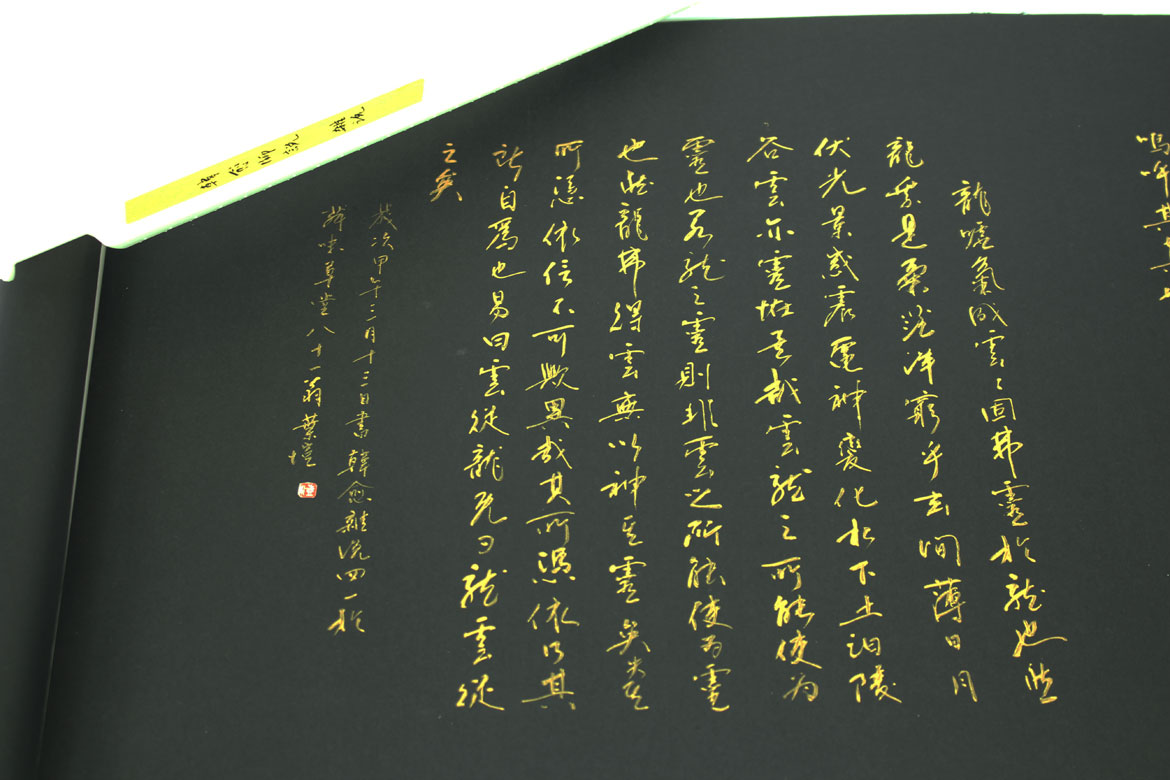 嗚呼其真
龍噓氣成雲〻固弗靈於龍也然
龍乘是氣茫洋窮乎玄間薄日月
伏光景感震電神變化水下土汩陵
谷雲亦靈怪矣哉雲龍之所能使為
靈也若龍之靈則非雲之所能使為靈
也然龍弗得雲無以神其靈矣失其
所憑依信不可歟異哉其所憑依乃其
所自爲也易曰雲從龍既曰龍雲從
之矣
歲次甲午三月十三日書韓愈雜說四一於
草堂八十一翁葉愷
韓愈 師說 雜說